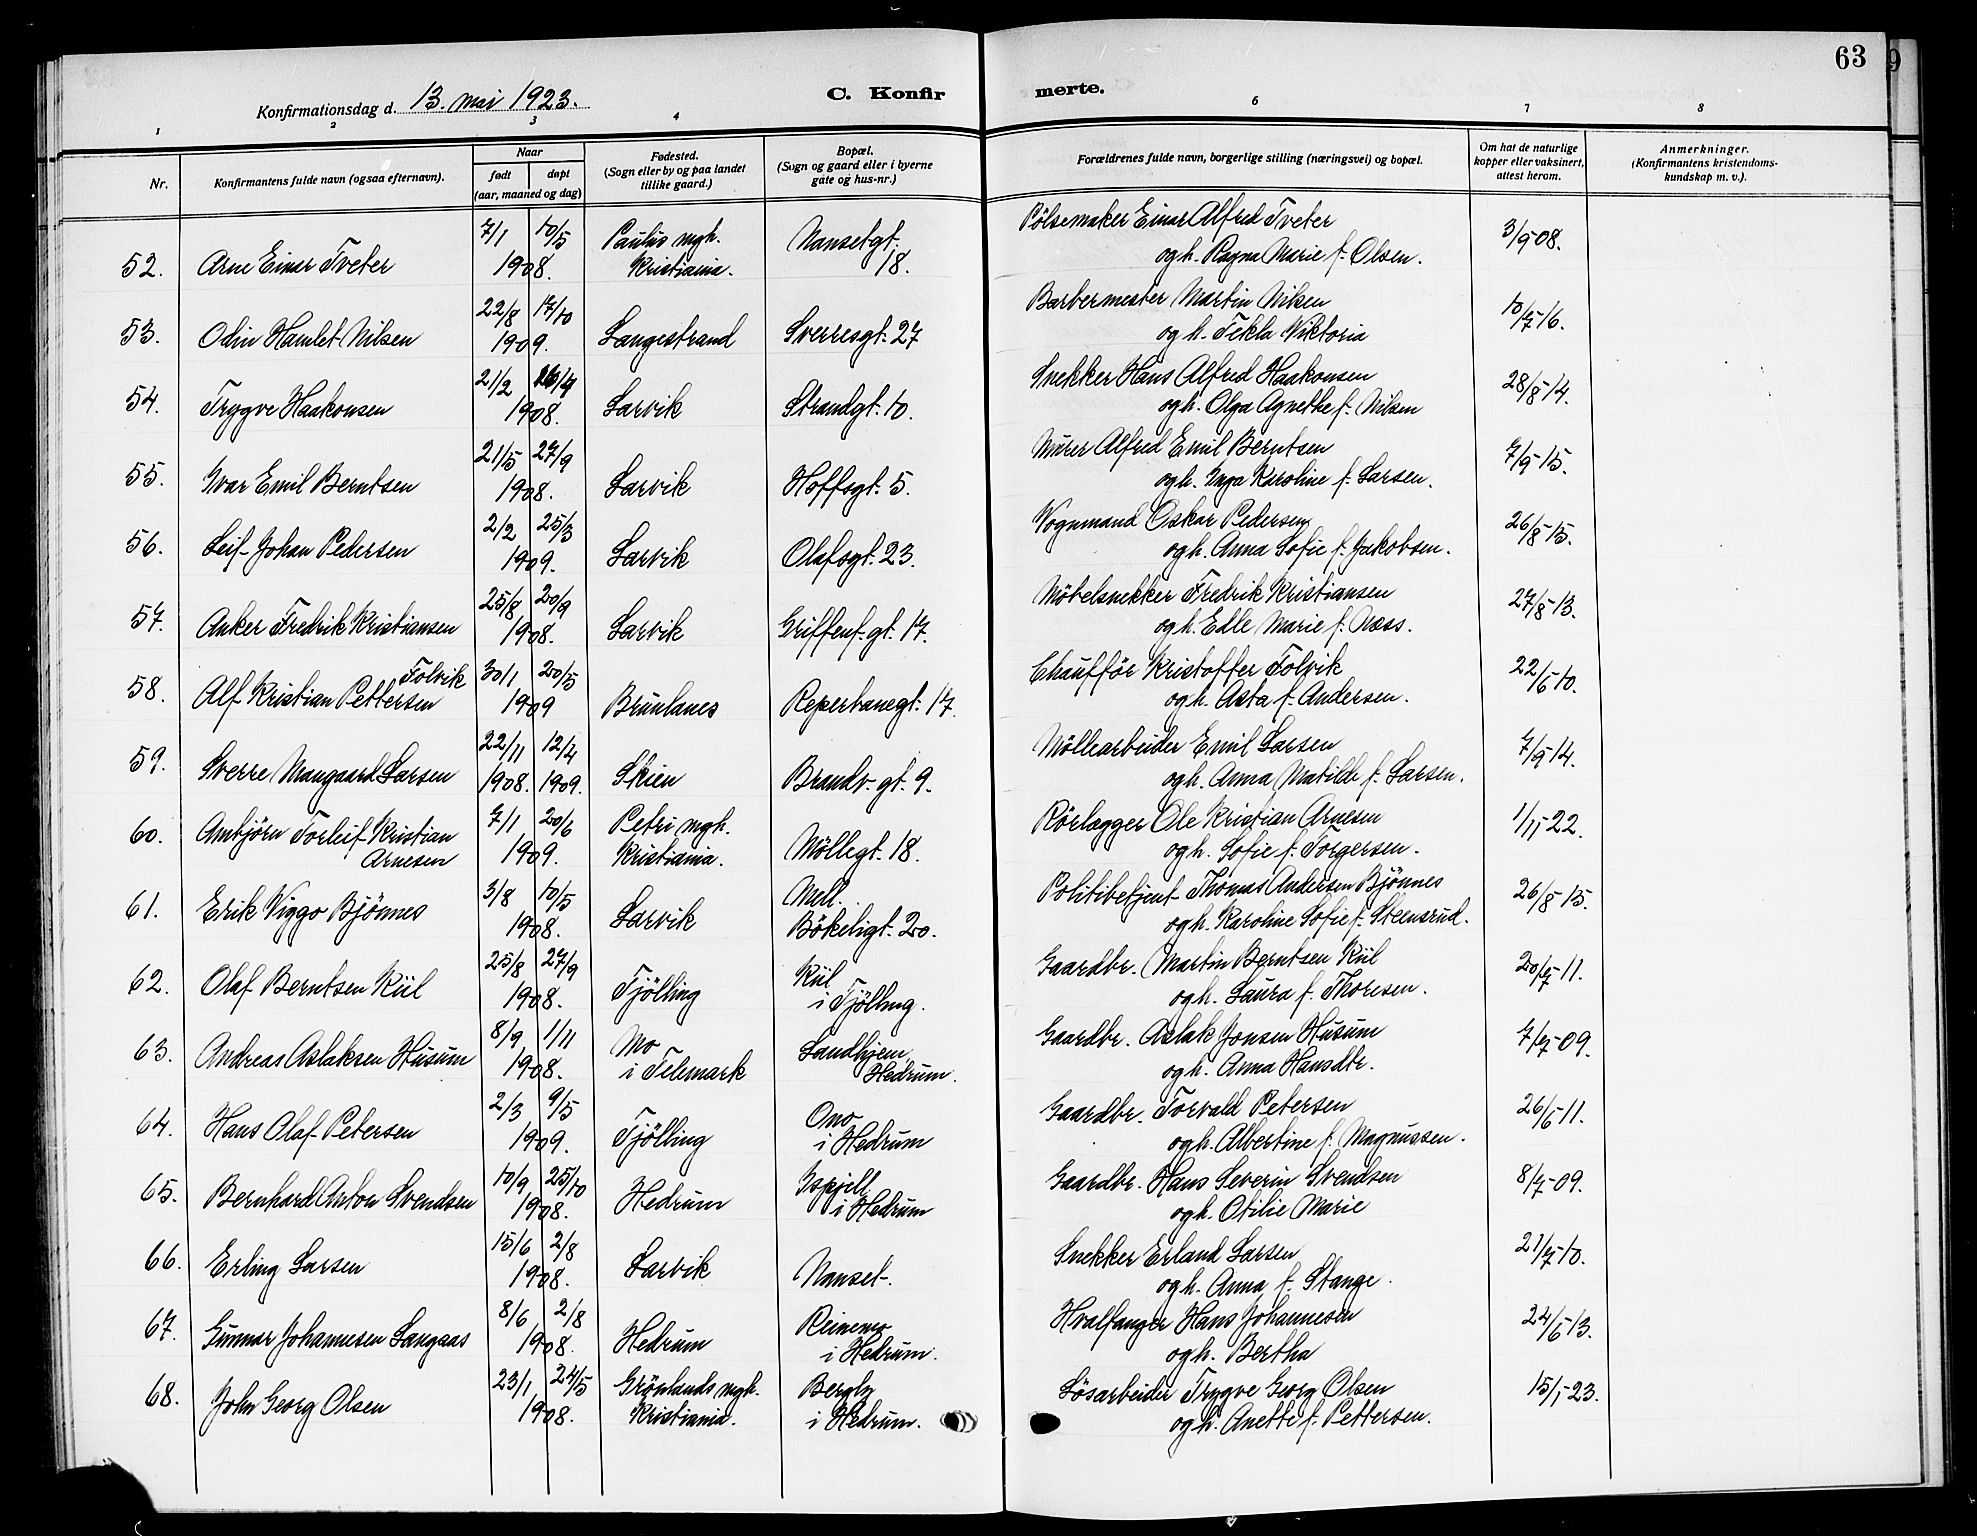 63
Konfirmationsdag d. 13. mai 1923.
C. Konfir
merte.
1 2 3 4 6 7 8
Nr.
Konfirmantens fulde navn (ogsaa efternavn).
Naar
født døpt
(aar, maaned og dag)
Fødested.
(Sogn eller by og paa landet
tillike gaard.)
Bopæl.
(Sogn og gaard eller i byerne
gate og hus-nr.)
Forældrenes fulde navn, borgerlige stilling (næringsvei) og bopæl.
Om hat de naturlige
kopper eller vaksinert,
attest herom.
Anmerkninger.
(Konfirmantens kristendoms-
kundskap m. v.).
7/1 10/5 Paulus mgh. Nansetgt. Pölsemaker Einar Alfred Tveter 3/9-08.
52. Arne Einar Tveter 1908. Kristiania. 18. og h. Ragna Marie f. Olsen.
22/8 17/10 Barbermester Martin Nilsen 10/7-16.
53. Odin Hamlet Nilsen 1909. Langestrand Sverresgt. 27 og h. Tekla Viktoria
21/2 Snekker Hans Alfred Haakonsen 28/8-14.
54. Trygve Haakonsen 1908. Larvik Strandgt. 10. og h. Olga Agnethe f. Nilsen
21/5 27/9 Murer Alfred Emil Berntsen 7/9-15.
55. Ivar Emil Berntsen 1908. Larvik Hoffsgt. 5. og h. Inga Karoline f. Larsen.
2/2 25/3 Vognmand Oskar Pedersen 26/8-15.
56. Leif Johan Pedersen 1909. Larvik Olafsgt. 23. og h. Anna Sofie f. Jakobsen.
25/8 20/9 Möbelsnekker Fredrik Kristiansen 27/8-13.
57. Anker Fredrik Kristiansen 1908. Larvik Griffenf. gt. 17. og h. Edle Marie f. Næss.
Folvik 30/1 20/5 Chaufför Kristoffer Folvik 22/6-10.
58. Alf Kristian Pettersen 1909 Brunlanes Reperbanegt. 17. og h. Asta f. Andersen.
22/11 12/4 Möllearbeider Emil Larsen 7/9-14.
59. Sverre Mangaard Larsen 1908. 1909. Skien Brandv. gt. 9. og h. Anna Matilde f. Larsen.
60. Ambjörn Torleif Kristian 7/1 20/6 Petri mgh. Rörlægger Ole Kristian Arnesen 1/11-22.
Arnesen 1909. Kristiania. Möllegt. 18. og h. Sofie f. Torgersen.
3/8 10/5 Mell. Politibetjent Thomas Andersen Bjönnes 26/8-15.
61. Erik Viggo Bjönnes 1908. Larvik Bökeligt. 20. og h. Karoline Sofie f. Steensrud.
25/8 27/9 Kiil Gaardbr. Martin Berntsen Kiil 20/7-11.
62. Olaf Berntsen Kiil 1908. Tjölling i Tjölling. og h. Laura f. Thoresen.
8/9 1/11 Mo Landhjem, Gaardbr. Aslak Jonsen Husum 7/7-09.
63. Andreas Aslaksen Husum 1908. i Telemark Hedrum. og h. Anna Hansdtr.
2/3 9/5 Ono Gaardbr. Torvald Petersen 26/6-11.
64. Hans Olaf Petersen 1909. Tjölling i Hedrum og h. Albertine f. Magnussen.
10/9 25/10 Gaardbr. Hans Severin Svendsen 8/7-09.
65. Bernhard Anton Svendsen 1908. Hedrum i Hedrum og h. Otilie Marie
15/6 2/8 Snekker Erland Larsen 21/7-10.
66. Erling Larsen 1908. Larvik Nanset. og h. Anna f. Stange.
8/6 2/8 Reinemo Hvalfanger Hans Johannesen 24/6-13.
67. Gunnar Johannesen Langaas 1908. Hedrum i Hedrum. og h. Bertha
23/1 24/5 Grönlands mgh. Bergly Lösarbeider Trygve Georg Olsen 15/1-23.
68. John Georg Olsen 1908. Kristiania. i Hedrum. og h. Anette f. Pettersen.